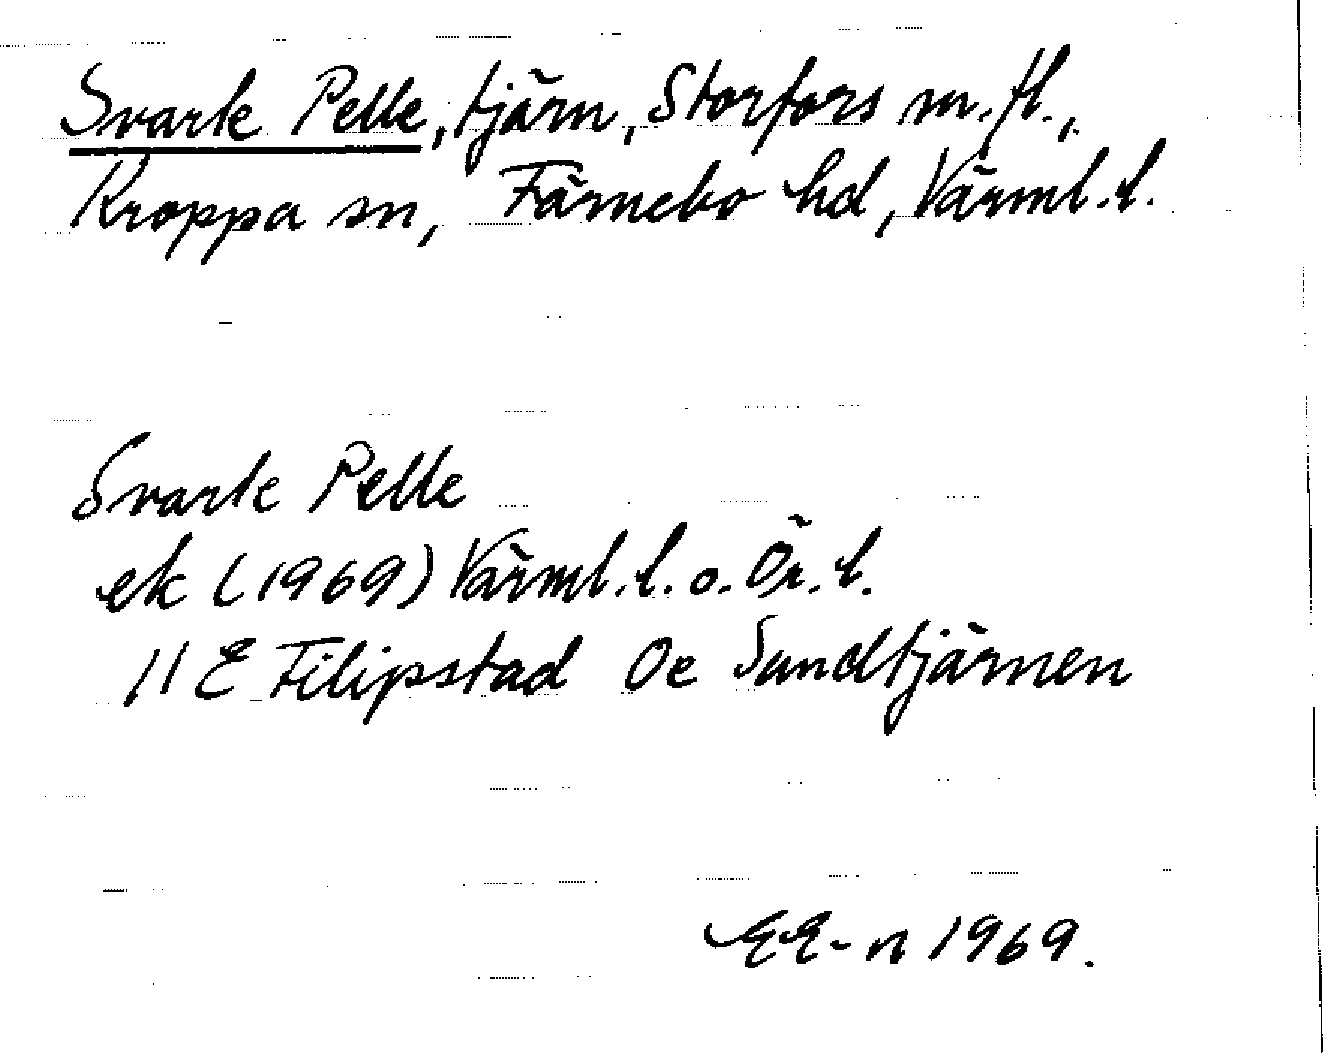 Svarte Pelle, tjärn, Storfors m.fl.,
Kroppa sn, Färnebo hd, Värml.l.
Svarte Pelle
ek (1969) Värml.l. o. Ör.l.
11E Filipstad Oe Sundtjärnen
EE-n 1969.